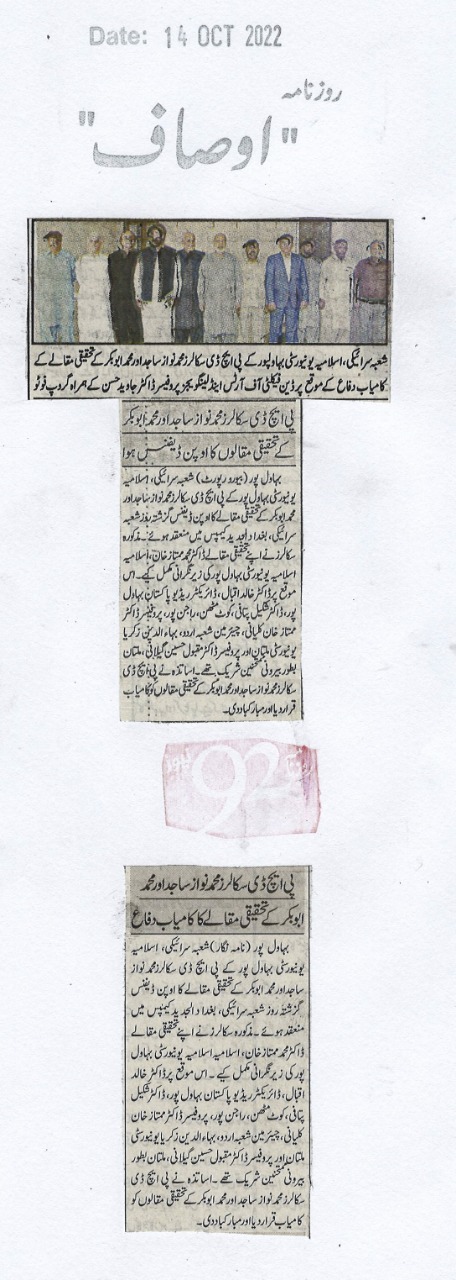 Date: 14 OCT 2022
روزنامہ
"اوصاف"
شعبہ سرائیکی، اسلامیہ یونیورسٹی بہاولپور کے پی ایچ ڈی سکالرز محمد نواز ساجد اور محمد ابوبکر کے تحقیقی مقالے کے
کامیاب دفاع کے موقع پر ڈین فیکلٹی آف آرٹس اینڈ لینگویجز پروفیسر ڈاکٹر جاوید حسن کے ہمراہ گروپ فوٹو
پی ایچ ڈی سکالرز محمد نواز ساجد اور محمد ابوبکر
کے تحقیقی مقالوں کا اوپن ڈیفنس ہوا
بہاول پور (بیورو رپورٹ) شعبہ سرائیکی، اسلامیہ
یونیورسٹی بہاول پور کے پی ایچ ڈی سکالرز محمد نواز ساجد اور
محمد ابوبکر کے تحقیقی مقالے کا اوپن ڈیفنس گزشتہ روز شعبہ
سرائیکی، بغداد الجدید کیمپس میں منعقد ہوئے۔ مذکورہ
سکالرز نے اپنے تحقیقی مقالے ڈاکٹر محمد ممتاز خان، اسلامیہ
اسلامیہ یونیورسٹی بہاول پور کی زیر نگرانی مکمل کیے۔ اس
موقع پر ڈاکٹر خالد اقبال، ڈائریکٹر ریڈیو پاکستان بہاول
پور، ڈاکٹر شکیل پتافی، کوٹ مٹھن، راجن پور، پروفیسر ڈاکٹر
ممتاز خان کلیانی، چیئرمین شعبہ اردو، بہاء الدین زکریا
یونیورسٹی ملتان اور پروفیسر ڈاکٹر مقبول حسین گیلانی، ملتان
بطور بیرونی ممتحنین شریک تھے۔ اساتذہ نے پی ایچ ڈی
سکالرز محمد نواز ساجد اور محمد ابوبکر کے تحقیقی مقالوں کو کامیاب
قرار دیا اور مبارکباد دی۔
92
نیوز
پی ایچ ڈی سکالرز محمد نواز ساجد اور محمد
ابوبکر کے تحقیقی مقالے کا کامیاب دفاع
بہاول پور (نامہ نگار) شعبہ سرائیکی، اسلامیہ
یونیورسٹی بہاول پور کے پی ایچ ڈی سکالرز محمد نواز
ساجد اور محمد ابوبکر کے تحقیقی مقالے کا اوپن ڈیفنس
گزشتہ روز شعبہ سرائیکی، بغداد الجدید کیمپس میں
منعقد ہوئے۔ مذکورہ سکالرز نے اپنے تحقیقی مقالے
ڈاکٹر محمد ممتاز خان، اسلامیہ اسلامیہ یونیورسٹی بہاول
پور کی زیر نگرانی مکمل کیے۔ اس موقع پر ڈاکٹر خالد
اقبال، ڈائریکٹر ریڈیو پاکستان بہاول پور، ڈاکٹر شکیل
پتافی، کوٹ مٹھن، راجن پور، پروفیسر ڈاکٹر ممتاز خان
کلیانی، چیئرمین شعبہ اردو، بہاء الدین زکریا یونیورسٹی
ملتان اور پروفیسر ڈاکٹر مقبول حسین گیلانی، ملتان بطور
بیرونی ممتحنین شریک تھے۔ اساتذہ نے پی ایچ ڈی
سکالرز محمد نواز ساجد اور محمد ابوبکر کے تحقیقی مقالوں کو
کامیاب قرار دیا اور مبارکباد دی۔